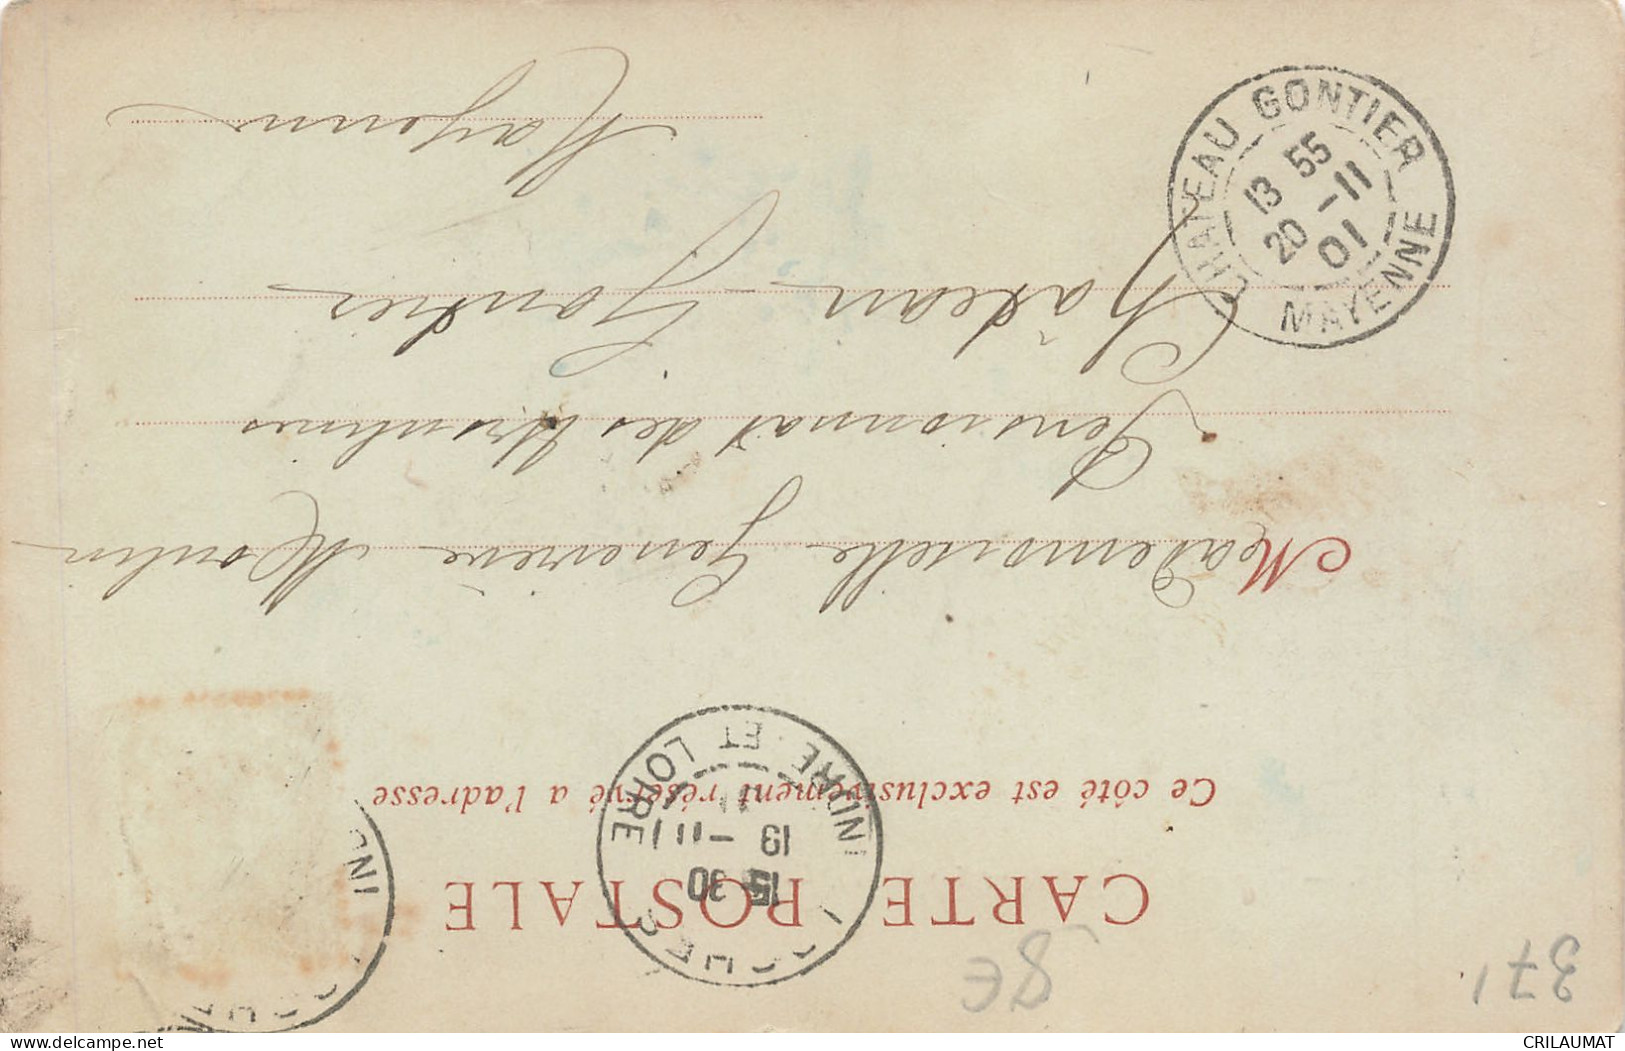 CARTE POSTALE
Ce côté est exclusivement réservé a l'adresse
Mademoiselle Geneviève Moulin
Pensionnat des Ursulines
Château-Gontier
Mayenne
CHATEAU GONTIER
13 55
20 -11
01
MAYENNE
LOCHES
15 30
19 -11
INDRE-ET-LOIRE
8E
371
www.delcampe.net
CRILAUMAT